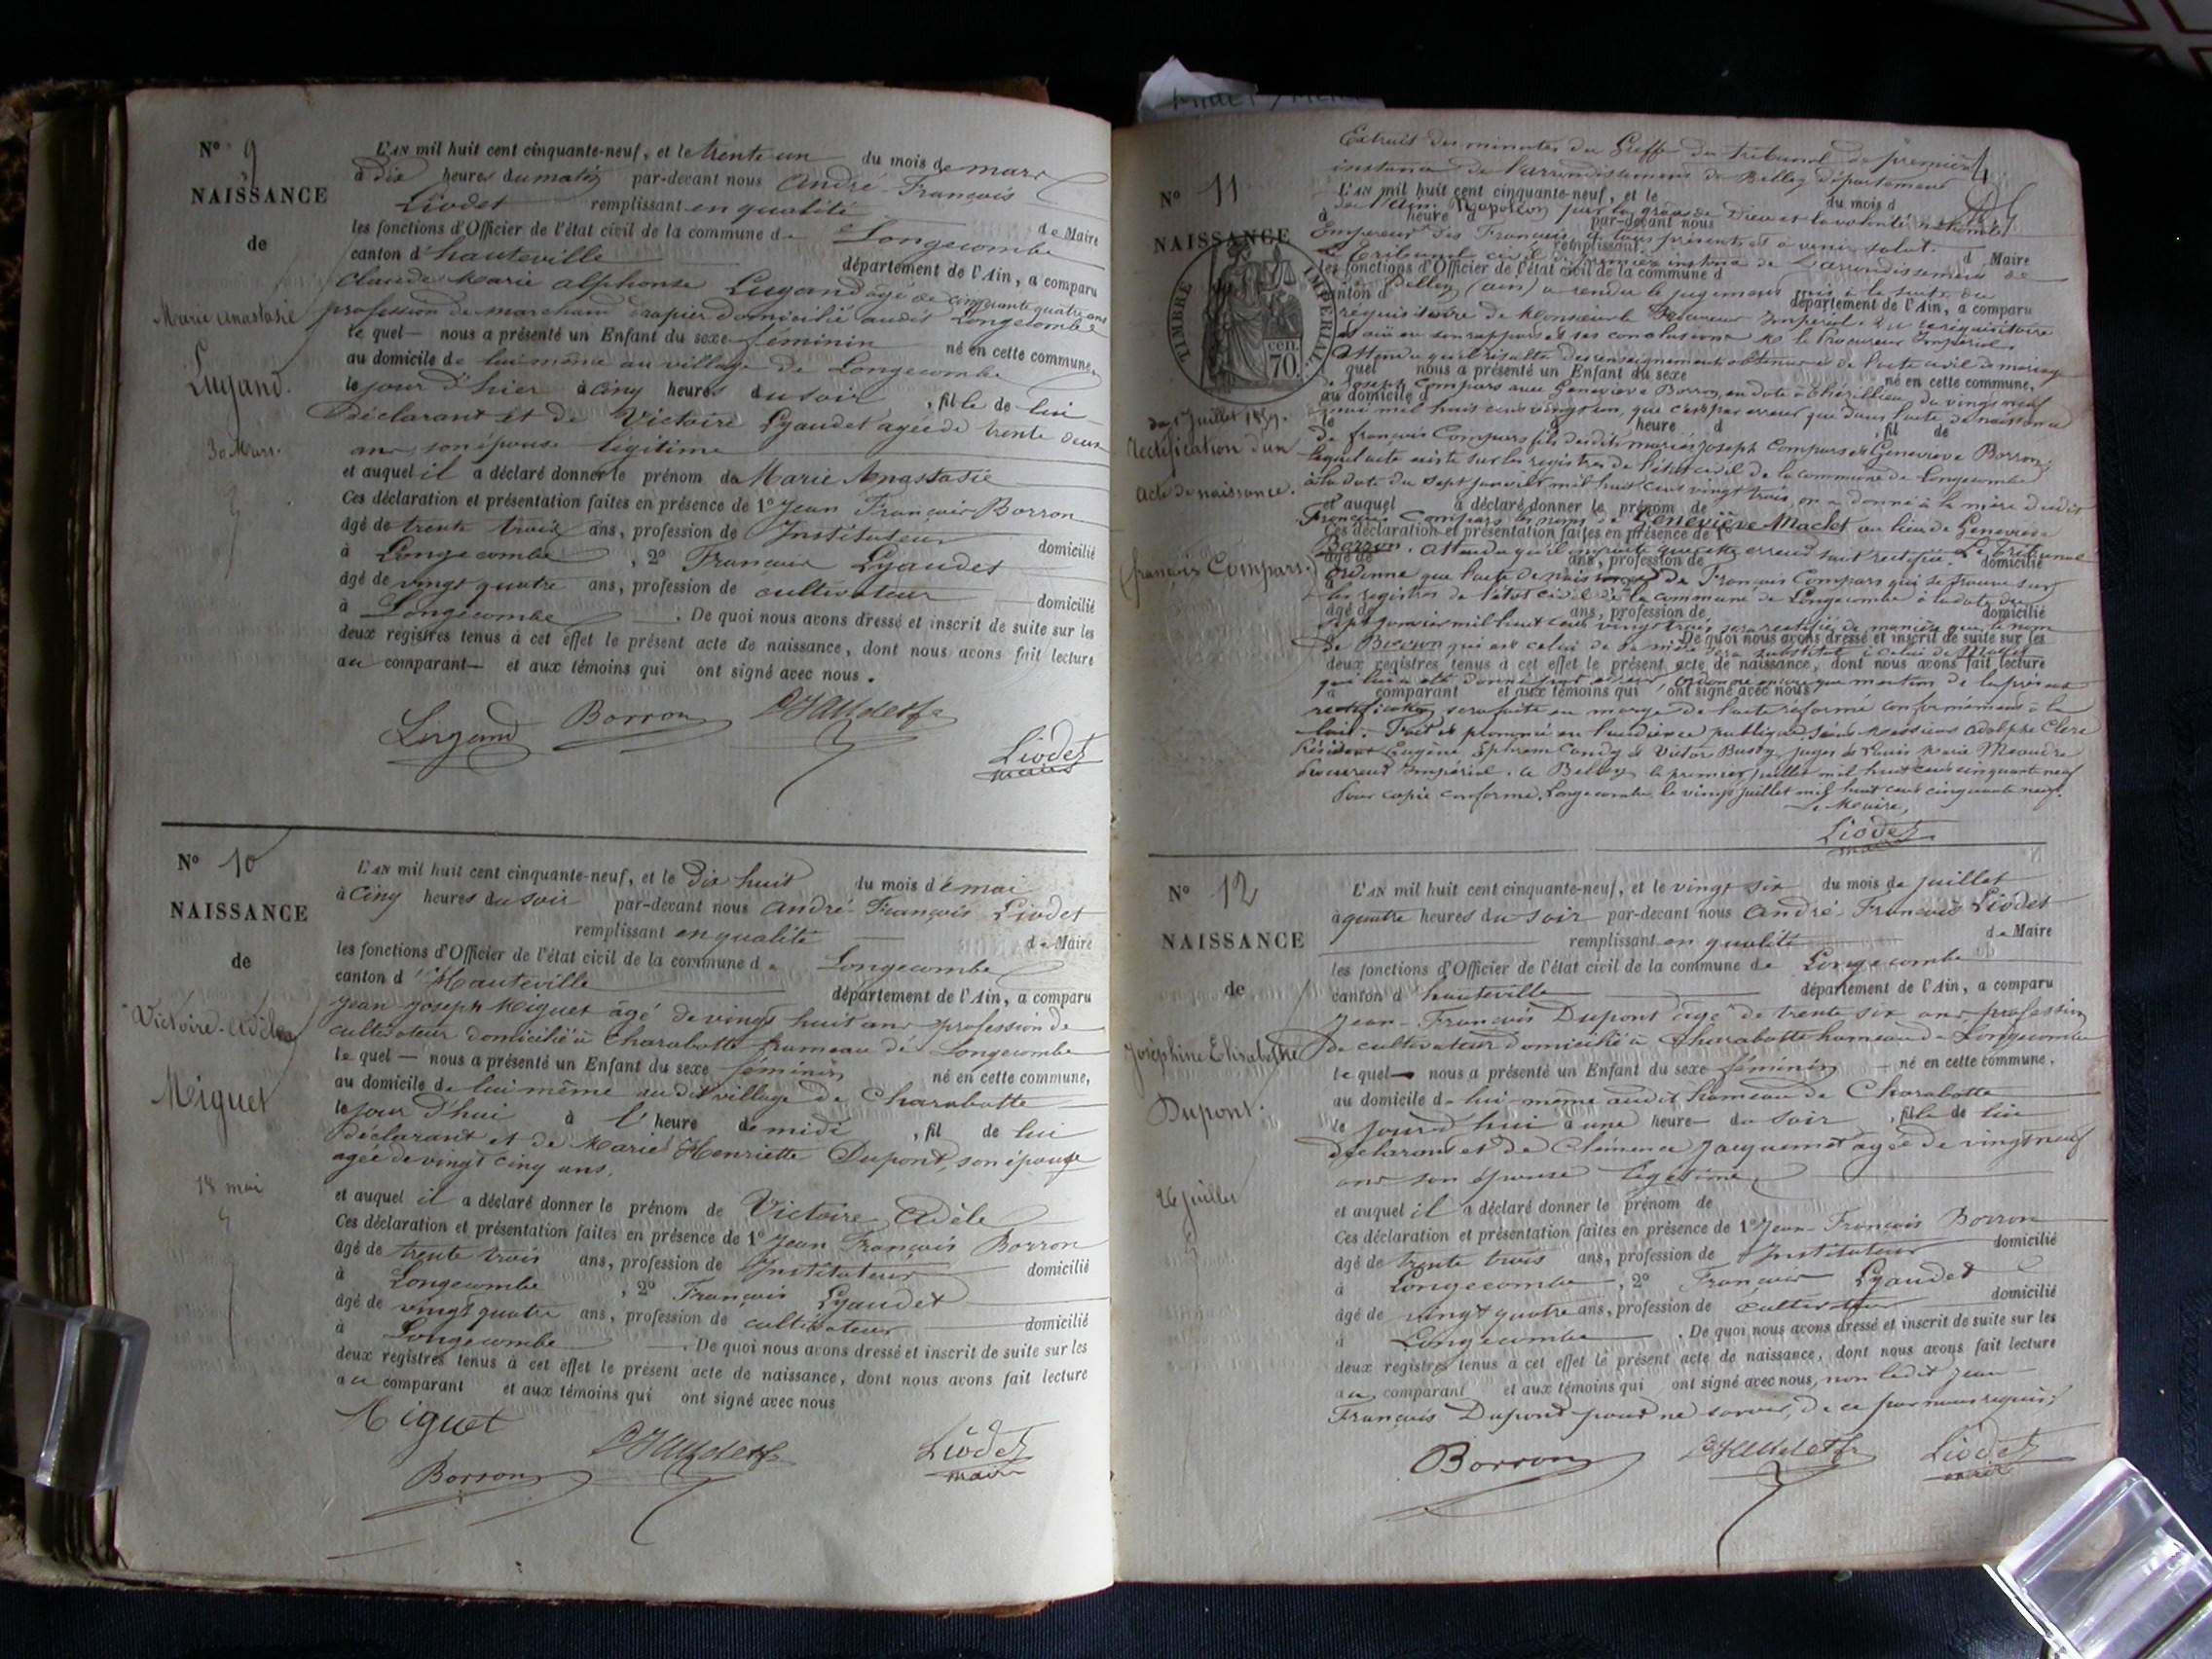 N° 9
NAISSANCE
de
Marie Anastasie
Lugand.
30 Mars.
L'AN mil huit cent cinquante-neuf, et le trente un du mois de mars
à dix heures du matin par-devant nous André François
Liodet remplissant en qualité de Maire
les fonctions d'Officier de l'état civil de la commune de Longecombe
canton d'hauteville département de l'Ain, a comparu
Claude Marie alphonse Lugand âgé de cinquante quatre ans
profession de marchand drapier domicilié audit Longecombe
le quel nous a présenté un Enfant du sexe féminin né en cette commune,
au domicile de lui même au village de Longecombe
le jour d'hier à cinq heures du soir, fille de lui
déclarant et de Victoire Lyaudet agée de trente deux
ans, son épouse légitime
et auquel il a déclaré donner le prénom de Marie Anastasie
Ces déclaration et présentation faites en présence de 1° Jean François Borron
âgé de trente trois ans, profession de Instituteur domicilié
à Longecombe, 2° François Lyaudet
âgé de vingt quatre ans, profession de cultivateur domicilié
à Longecombe. De quoi nous avons dressé et inscrit de suite sur les
deux registres tenus à cet effet le présent acte de naissance, dont nous avons fait lecture
au comparant et aux témoins qui ont signé avec nous.
Lugand Borron Lyaudet
Liodet
maire
N° 10
NAISSANCE
de
Victoire-Adèle
Miguet
18 mai
L'AN mil huit cent cinquante-neuf, et le dix huit du mois de mai
à cinq heures du soir par-devant nous André-François Liodet
remplissant en qualité de Maire
les fonctions d'Officier de l'état civil de la commune de Longecombe
canton d'Hauteville département de l'Ain, a comparu
Jean-Joseph Miguet âgé de vingt huit ans profession de
cultivateur domicilié à Charabotte hameau de Longecombe
le quel nous a présenté un Enfant du sexe féminin né en cette commune,
au domicile de lui même audit village de Charabotte
le jour d'hui à l'heure de midi, fil de lui
déclarant et de Marie Henriette Dupont, son épouse
agée de vingt cinq ans.
et auquel il a déclaré donner le prénom de Victoire Adèle
Ces déclaration et présentation faites en présence de 1° Jean François Borron
âgé de trente trois ans, profession de Instituteur domicilié
à Longecombe, 2° François Lyaudet
âgé de vingt quatre ans, profession de cultivateur domicilié
à Longecombe. De quoi nous avons dressé et inscrit de suite sur les
deux registres tenus à cet effet le présent acte de naissance, dont nous avons fait lecture
au comparant et aux témoins qui ont signé avec nous
Miguet
Borron Lyaudet Liodet
maire
N° 11
NAISSANCE
TIMBRE IMPÉRIAL
70 cen.
Juillet 1859.
Rectification d'un
acte de naissance.
(françois Compars.)
Extrait des minutes du Greffe du Tribunal de première
instance de l'arrondissement de Belley département
L'AN mil huit cent cinquante-neuf, et le du mois d
de l'Ain. Napoléon par la grâce de Dieu et la volonté nationale
à heure d par-devant nous
Empereur des Français, à tous présents et à venir salut.
remplissant d Maire
Le Tribunal civil de première instance de l'arrondissement de
les fonctions d'Officier de l'état civil de la commune d
Belley (ain) a rendu le jugement mis à la suite du
canton d département de l'Ain, a comparu
réquisitoire de Monsieur le Procureur Impérial. Vu le réquisitoire
et ouï en son rapport et ses conclusions M. le Procureur Impérial.
Attendu qu'il résulte des renseignements obtenus et de l'acte civil de mariage
quel nous a présenté un Enfant du sexe né en cette commune,
de Joseph Compars avec Geneviève Borron, en date du vingt neuf
au domicile d
mai mil huit cent vingt un, que c'est par erreur que dans l'acte de naissance
le heure d, fil de
de françois Compars fils desdits mariés Joseph Compars et Geneviève Borron,
lequel acte existe sur les registres de l'état civil de la commune de Longecombe
à la date du sept janvier mil huit cent vingt trois, on a donné à la mère dudit
et auquel a déclaré donner le prénom de
François Compars les noms de Geneviève Maclet au lieu de Geneviève
Ces déclaration et présentation faites en présence de 1°
Borron. Attendu qu'il importe que cette erreur soit rectifiée. Le Tribunal
âgé de ans, profession de domicilié
ordonne que l'acte de naissance de François Compars qui se trouve sur
les registres de l'état civil de la commune de Longecombe à la date du
âgé de ans, profession de domicilié
sept janvier mil huit cent vingt trois sera rectifié de manière que le nom
De quoi nous avons dressé et inscrit de suite sur les
de Borron qui est celui de sa mère sera substitué à celui de Maclet
deux registres tenus à cet effet le présent acte de naissance, dont nous avons fait lecture
qui lui a été donné par erreur, ordonne encore que mention de la présente
à comparant et aux témoins qui ont signé avec nous
rectification sera faite en marge de l'acte réformé conformément à la
loi. Fait et prononcé en l'audience publique Adolphe Clerc
Président Eugène Ephrem Candy et Victor juges et Louis Marie
Procureur Impérial. à Belley le premier juillet mil huit cent cinquante neuf
Pour copie conforme, Longecombe le vingt juillet mil huit cent cinquante neuf.
Le Maire,
Liodet
maire
N° 12
NAISSANCE
de
Joséphine Elisabethe
Dupont.
26 juillet
L'AN mil huit cent cinquante-neuf, et le vingt six du mois de juillet
à quatre heures du soir par-devant nous André François Liodet
remplissant en qualité de Maire
les fonctions d'Officier de l'état civil de la commune de Longecombe
canton d'hauteville département de l'Ain, a comparu
Jean-François Dupont âgé de trente six ans profession
de cultivateur domicilié à Charabotte hameau de Longecombe
le quel nous a présenté un Enfant du sexe féminin né en cette commune,
au domicile de lui-même audit hameau de Charabotte
le jour d'hui à une heure du soir, fille de lui
déclarant et de Clémence Jacquemet agée de vingt neuf
ans son épouse légitime
et auquel il a déclaré donner le prénom de
Ces déclaration et présentation faites en présence de 1° Jean-François Borron
âgé de trente trois ans, profession de Instituteur domicilié
à Longecombe, 2° François Lyaudet
âgé de vingt quatre ans, profession de cultivateur domicilié
à Longecombe. De quoi nous avons dressé et inscrit de suite sur les
deux registres tenus à cet effet le présent acte de naissance, dont nous avons fait lecture
au comparant et aux témoins qui ont signé avec nous, non ledit Jean
François Dupont pour ne savoir, de ce par nous requis;
Borron Lyaudet Liodet
maire